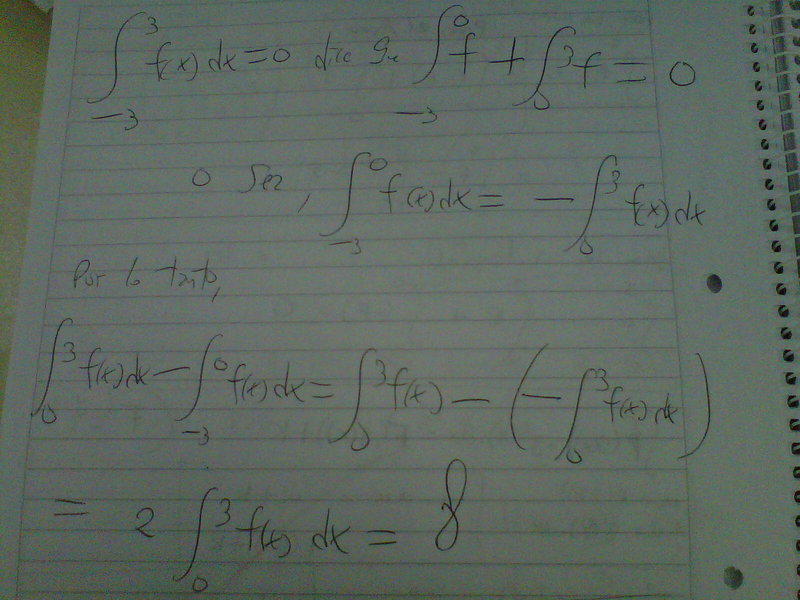 ∫_{-3}^{3} f(x) dx = 0 dice que ∫_{-3}^{0} f + ∫_{0}^{3} f = 0
o sea, ∫_{-3}^{0} f(x) dx = - ∫_{0}^{3} f(x) dx
Por lo tanto,
∫_{0}^{3} f(x) dx - ∫_{-3}^{0} f(x) dx = ∫_{0}^{3} f(x) - (- ∫_{0}^{3} f(x) dx)
= 2 ∫_{0}^{3} f(x) dx = 8